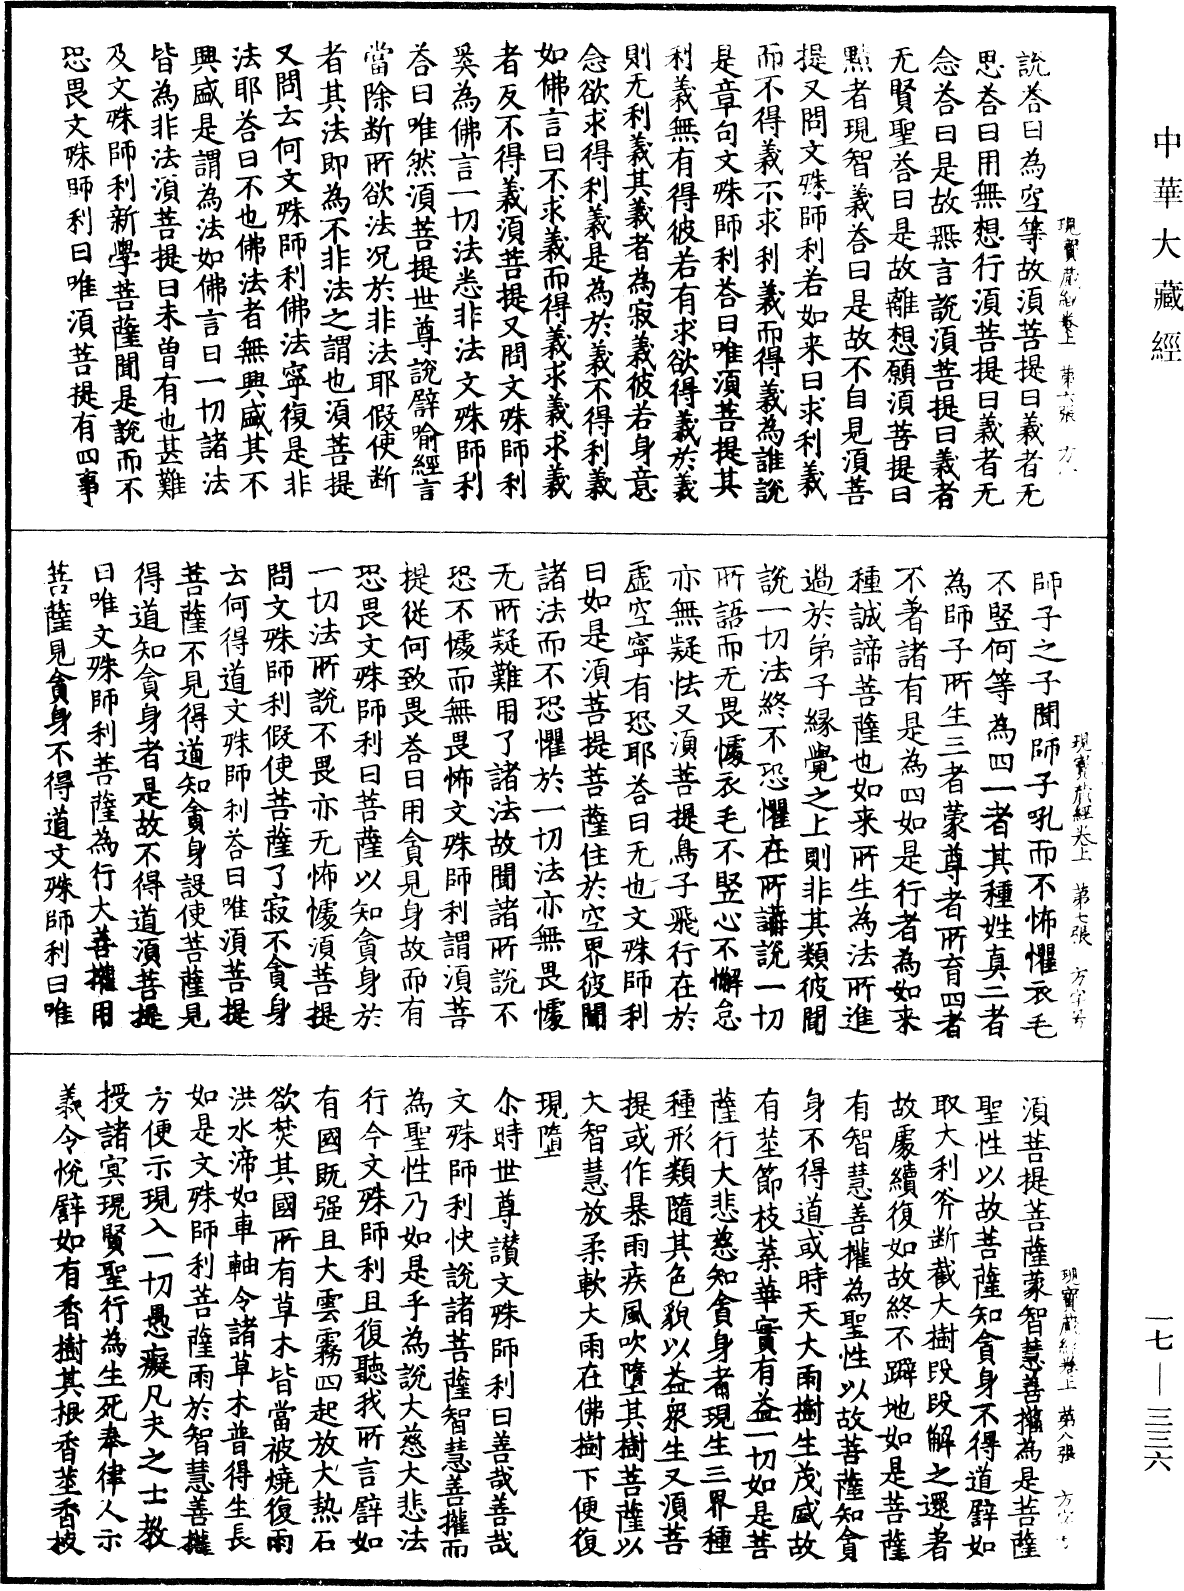 中華大藏經
現寶藏經卷上　第六張　方
說荅曰為空等故須菩提曰義者无
思荅曰用無想行須菩提曰義者无
念荅曰是故無言說須菩提曰義者
无賢聖荅曰是故離想願須菩提曰
點者現智義荅曰是故不自見須菩
提又問文殊師利若如来曰求利義
而不得義不求利義而得義為誰說
是章句文殊師利荅曰唯須菩提其
利義無有得彼若有求欲得義於義
則无利義其義者為寂義彼若身意
念欲求得利義是為於義不得利義
如佛言曰不求義而得義求義求義
者反不得義須菩提又問文殊師利
奚為佛言一切法悉非法文殊師利
荅曰唯然須菩提世尊說辟喻經言
當除断所欲法況於非法耶假使断
者其法即為不非法之謂也須菩提
又問云何文殊師利佛法寧復是非
法耶荅曰不也佛法者無興盛其不
興盛是謂為法如佛言曰一切諸法
皆為非法須菩提曰未曾有也甚難
及文殊師利新學菩薩聞是說而不
恐畏文殊師利曰唯須菩提有四事
現寶藏經卷上　第七張　方字号
師子之子聞師子吼而不怖懼衣毛
不竪何等為四一者其種姓真二者
為師子所生三者蒙尊者所育四者
不著諸有是為四如是行者為如来
種誠諦菩薩也如来所生為法所進
過於弟子緣覺之上則非其類彼聞
說一切法終不恐懼在所講說一切
所語而无畏懅衣毛不竪心不懈怠
亦無疑怯又須菩提鳥子飛行在於
虛空寧有恐耶荅曰无也文殊師利
曰如是須菩提菩薩住於空界彼聞
諸法而不恐懼於一切法亦無畏懅
无所疑難用了諸法故聞諸所說不
恐不懅而無畏怖文殊師利謂須菩
提從何致畏荅曰用貪見身故而有
恐畏文殊師利曰菩薩以知貪身於
一切法所說不畏亦无怖懅須菩提
問文殊師利假使菩薩了寂不貪身
云何得道文殊師利荅曰唯須菩提
菩薩不見得道知貪身設使菩薩見
得道知貪身者是故不得道須菩提
曰唯文殊師利菩薩為行大善權用
菩薩見貪身不得道文殊師利曰唯
現寶藏經卷上　第八張　方字号
須菩提菩薩蒙智慧善權為是菩薩
聖性以故菩薩知貪身不得道辟如
取大利斧断截大樹段段解之還著
故處續復如故終不躃地如是菩薩
有智慧善權為聖性以故菩薩知貪
身不得道或時天大雨樹生茂盛故
有莖節枝葉華實有益一切如是菩
薩行大悲慈知貪身者現生三界種
種形類隨其色貌以益衆生又須菩
提或作暴雨疾風吹墮其樹菩薩以
大智慧放柔軟大雨在佛樹下便復
現墮
尒時世尊讃文殊師利曰善哉善哉
文殊師利快說諸菩薩智慧善權而
為聖性乃如是乎為說大慈大悲法
行今文殊師利且復聽我所言辟如
有國既强且大雲霧四起放大熱石
欲焚其國所有草木皆當被燒復雨
洪水渧如車軸令諸草木普得生長
如是文殊師利菩薩雨於智慧善權
方便示現入一切愚癡凡夫之士教
授諸㝠現賢聖行為生死奉律人示
義令悅辟如有香樹其根香莖香披
一七—三三六